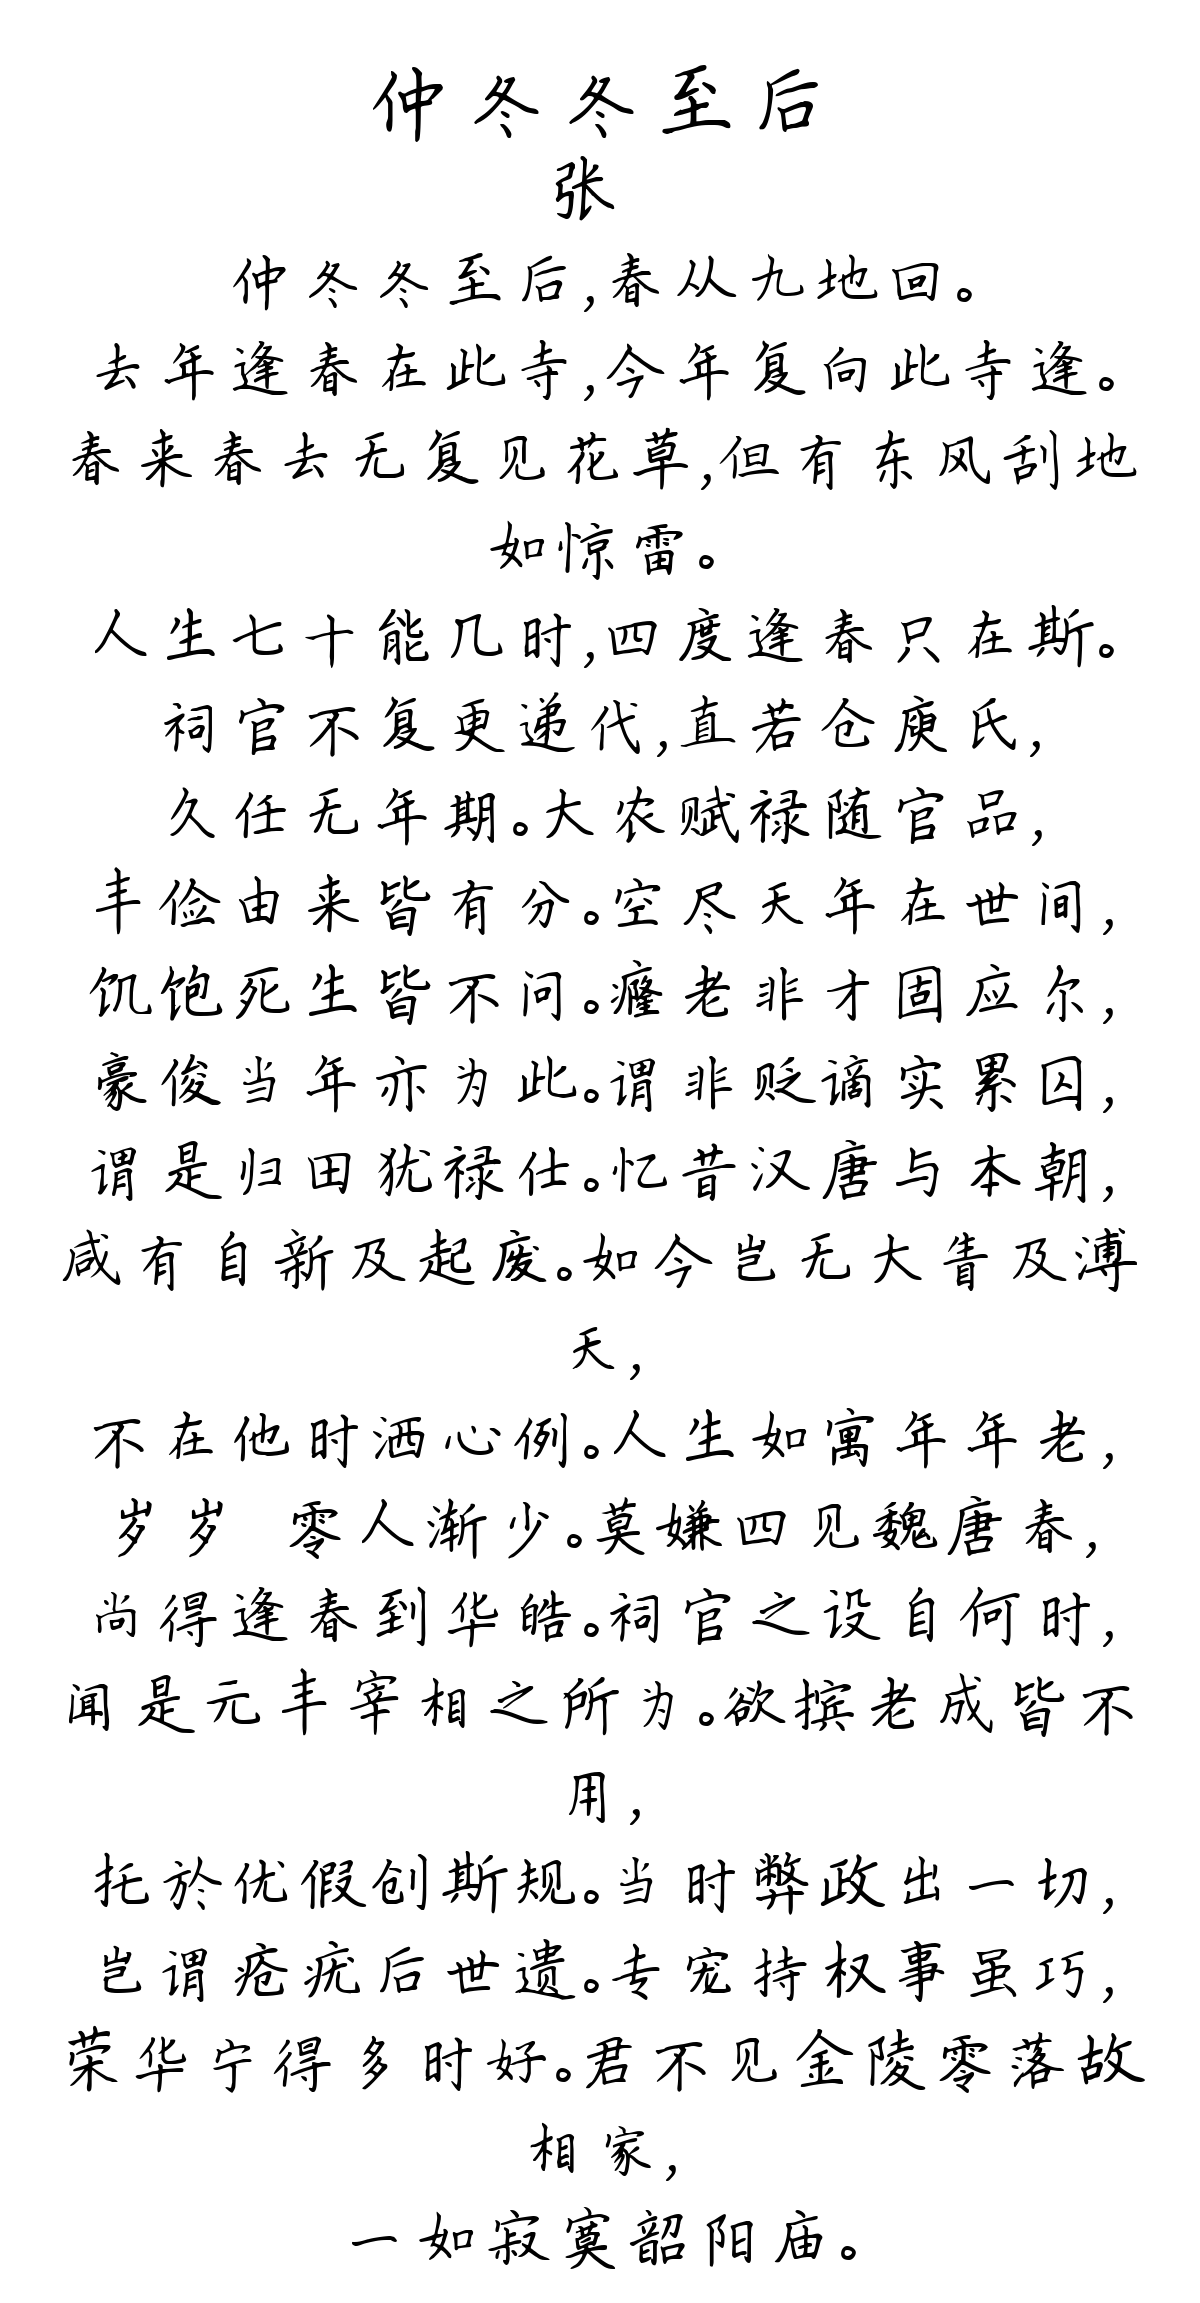 仲冬冬至后
张
仲冬冬至后,春从九地回。
去年逢春在此寺,今年复向此寺逢。
春来春去无复见花草,但有东风刮地
如惊雷。
人生七十能几时,四度逢春只在斯。
祠官不复更递代,直若仓庾氏,
久任无年期。大农赋禄随官品,
丰俭由来皆有分。空尽天年在世间,
饥饱死生皆不问。癃老非才固应尔,
豪俊当年亦为此。谓非贬谪实累囚,
谓是归田犹禄仕。忆昔汉唐与本朝,
咸有自新及起废。如今岂无大眚及溥
天,
不在他时洒心例。人生如寓年年老,
岁岁 零人渐少。莫嫌四见魏唐春,
尚得逢春到华皓。祠官之设自何时,
闻是元丰宰相之所为。欲摈老成皆不
用,
托於优假创斯规。当时弊政出一切,
岂谓疮疣后世遗。专宠持权事虽巧,
荣华宁得多时好。君不见金陵零落故
相家,
一如寂寞韶阳庙。